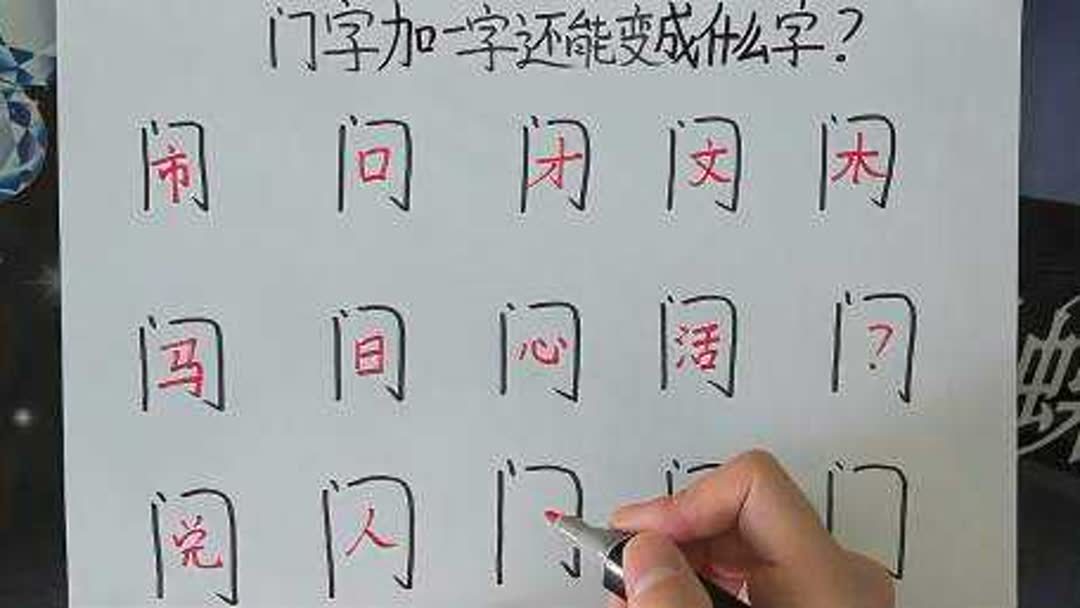 门字加一字还能变成什么字？
闹 问 闭 闵 闲
闯 间 闷 阔 门?
阅 闪 门 门 门